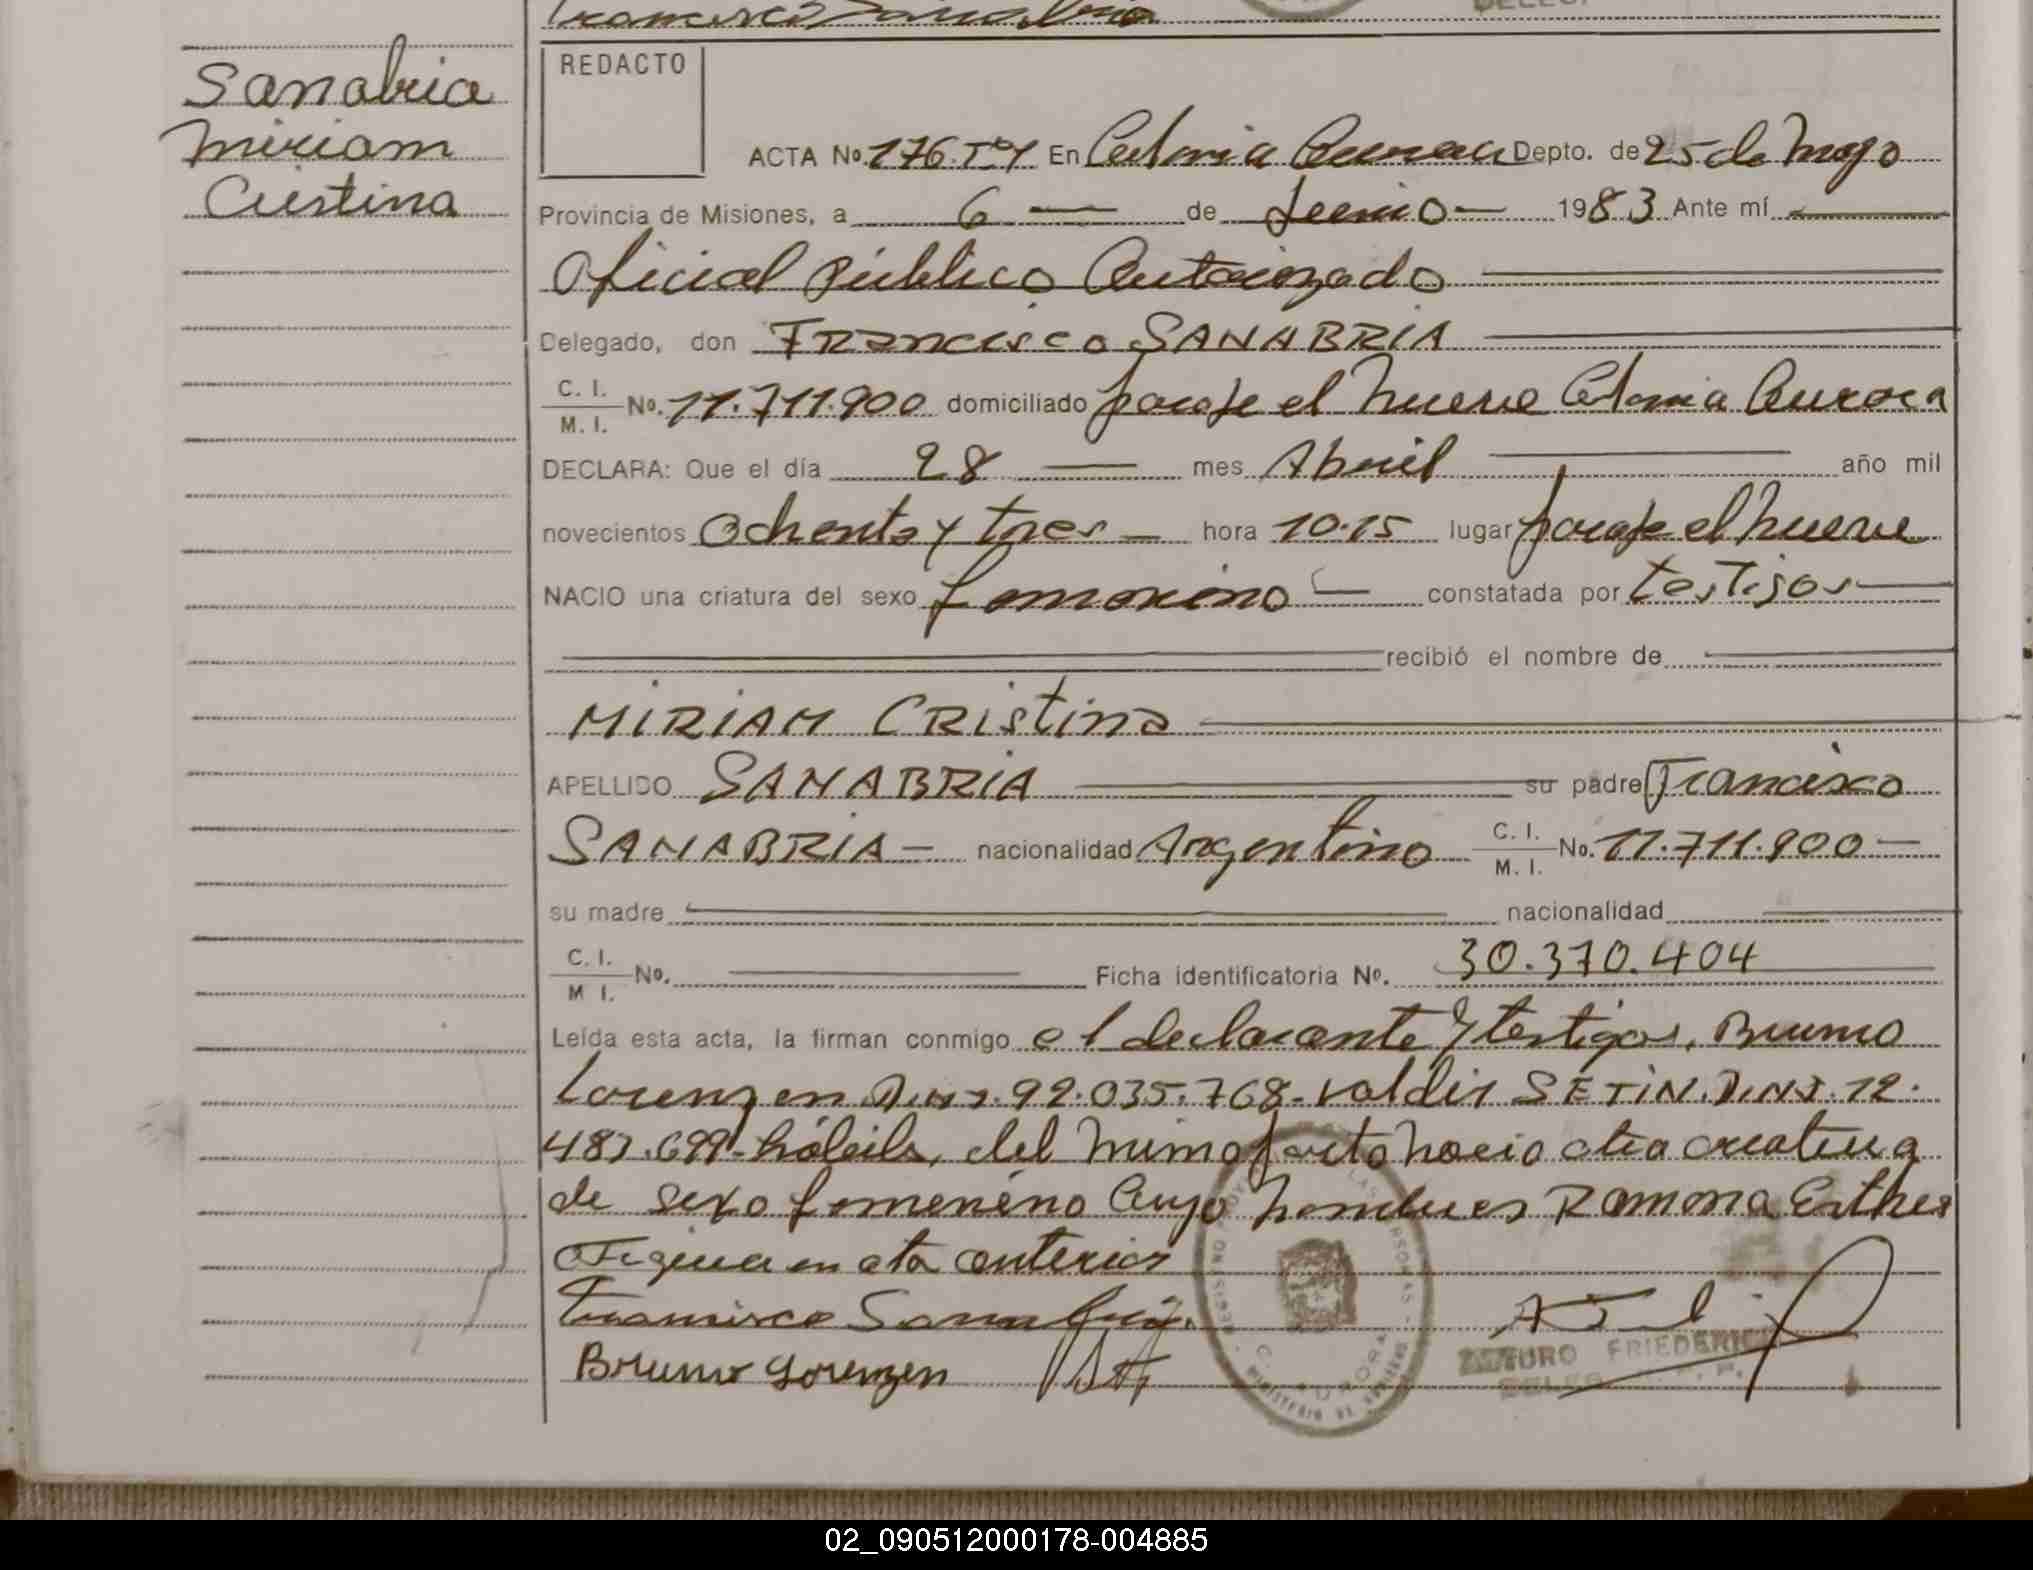 Francisco Sanabria
Sanabria
Miriam
Cristina
REDACTO
ACTA No. 176. Tº 1 En Colonia Aurora Depto. de 25 de Mayo
Provincia de Misiones, a 6 de Junio 1983 Ante mí
Oficial Público Autorizado
Delegado, don FRANCISCO SANABRIA
C. I.
M. I. No. 11.711.900 domiciliado paraje el nueve Colonia Aurora
DECLARA: Que el día 28 mes Abril año mil
novecientos Ochenta y tres hora 10.15 lugar paraje el nueve
NACIO una criatura del sexo femenino constatada por testigos
recibió el nombre de
MIRIAM CRIStina
APELLIDO SANABRIA su padre Francisco
SANABRIA nacionalidad Argentino C. I.
M. I. No. 11.711.900
su madre nacionalidad
C. I.
M I. No. Ficha identificatoria No. 30.370.404
Leída esta acta, la firman conmigo el declarante y testigos, Bruno
Lorenzen D.N.I. 92.035.768- Valdir SETIN. D.N.I. 12.
487.699- hábiles, del mimo parto nacio otra creatura
de sexo femeneno cuyo nombres Ramona Esther
figura en ata anterior
Francisco Sanabria
Bruno Lorenzen
ARTURO FRIEDERICH
AURORA
MINISTERIO DE GOBIERNO
02_090512000178-004885